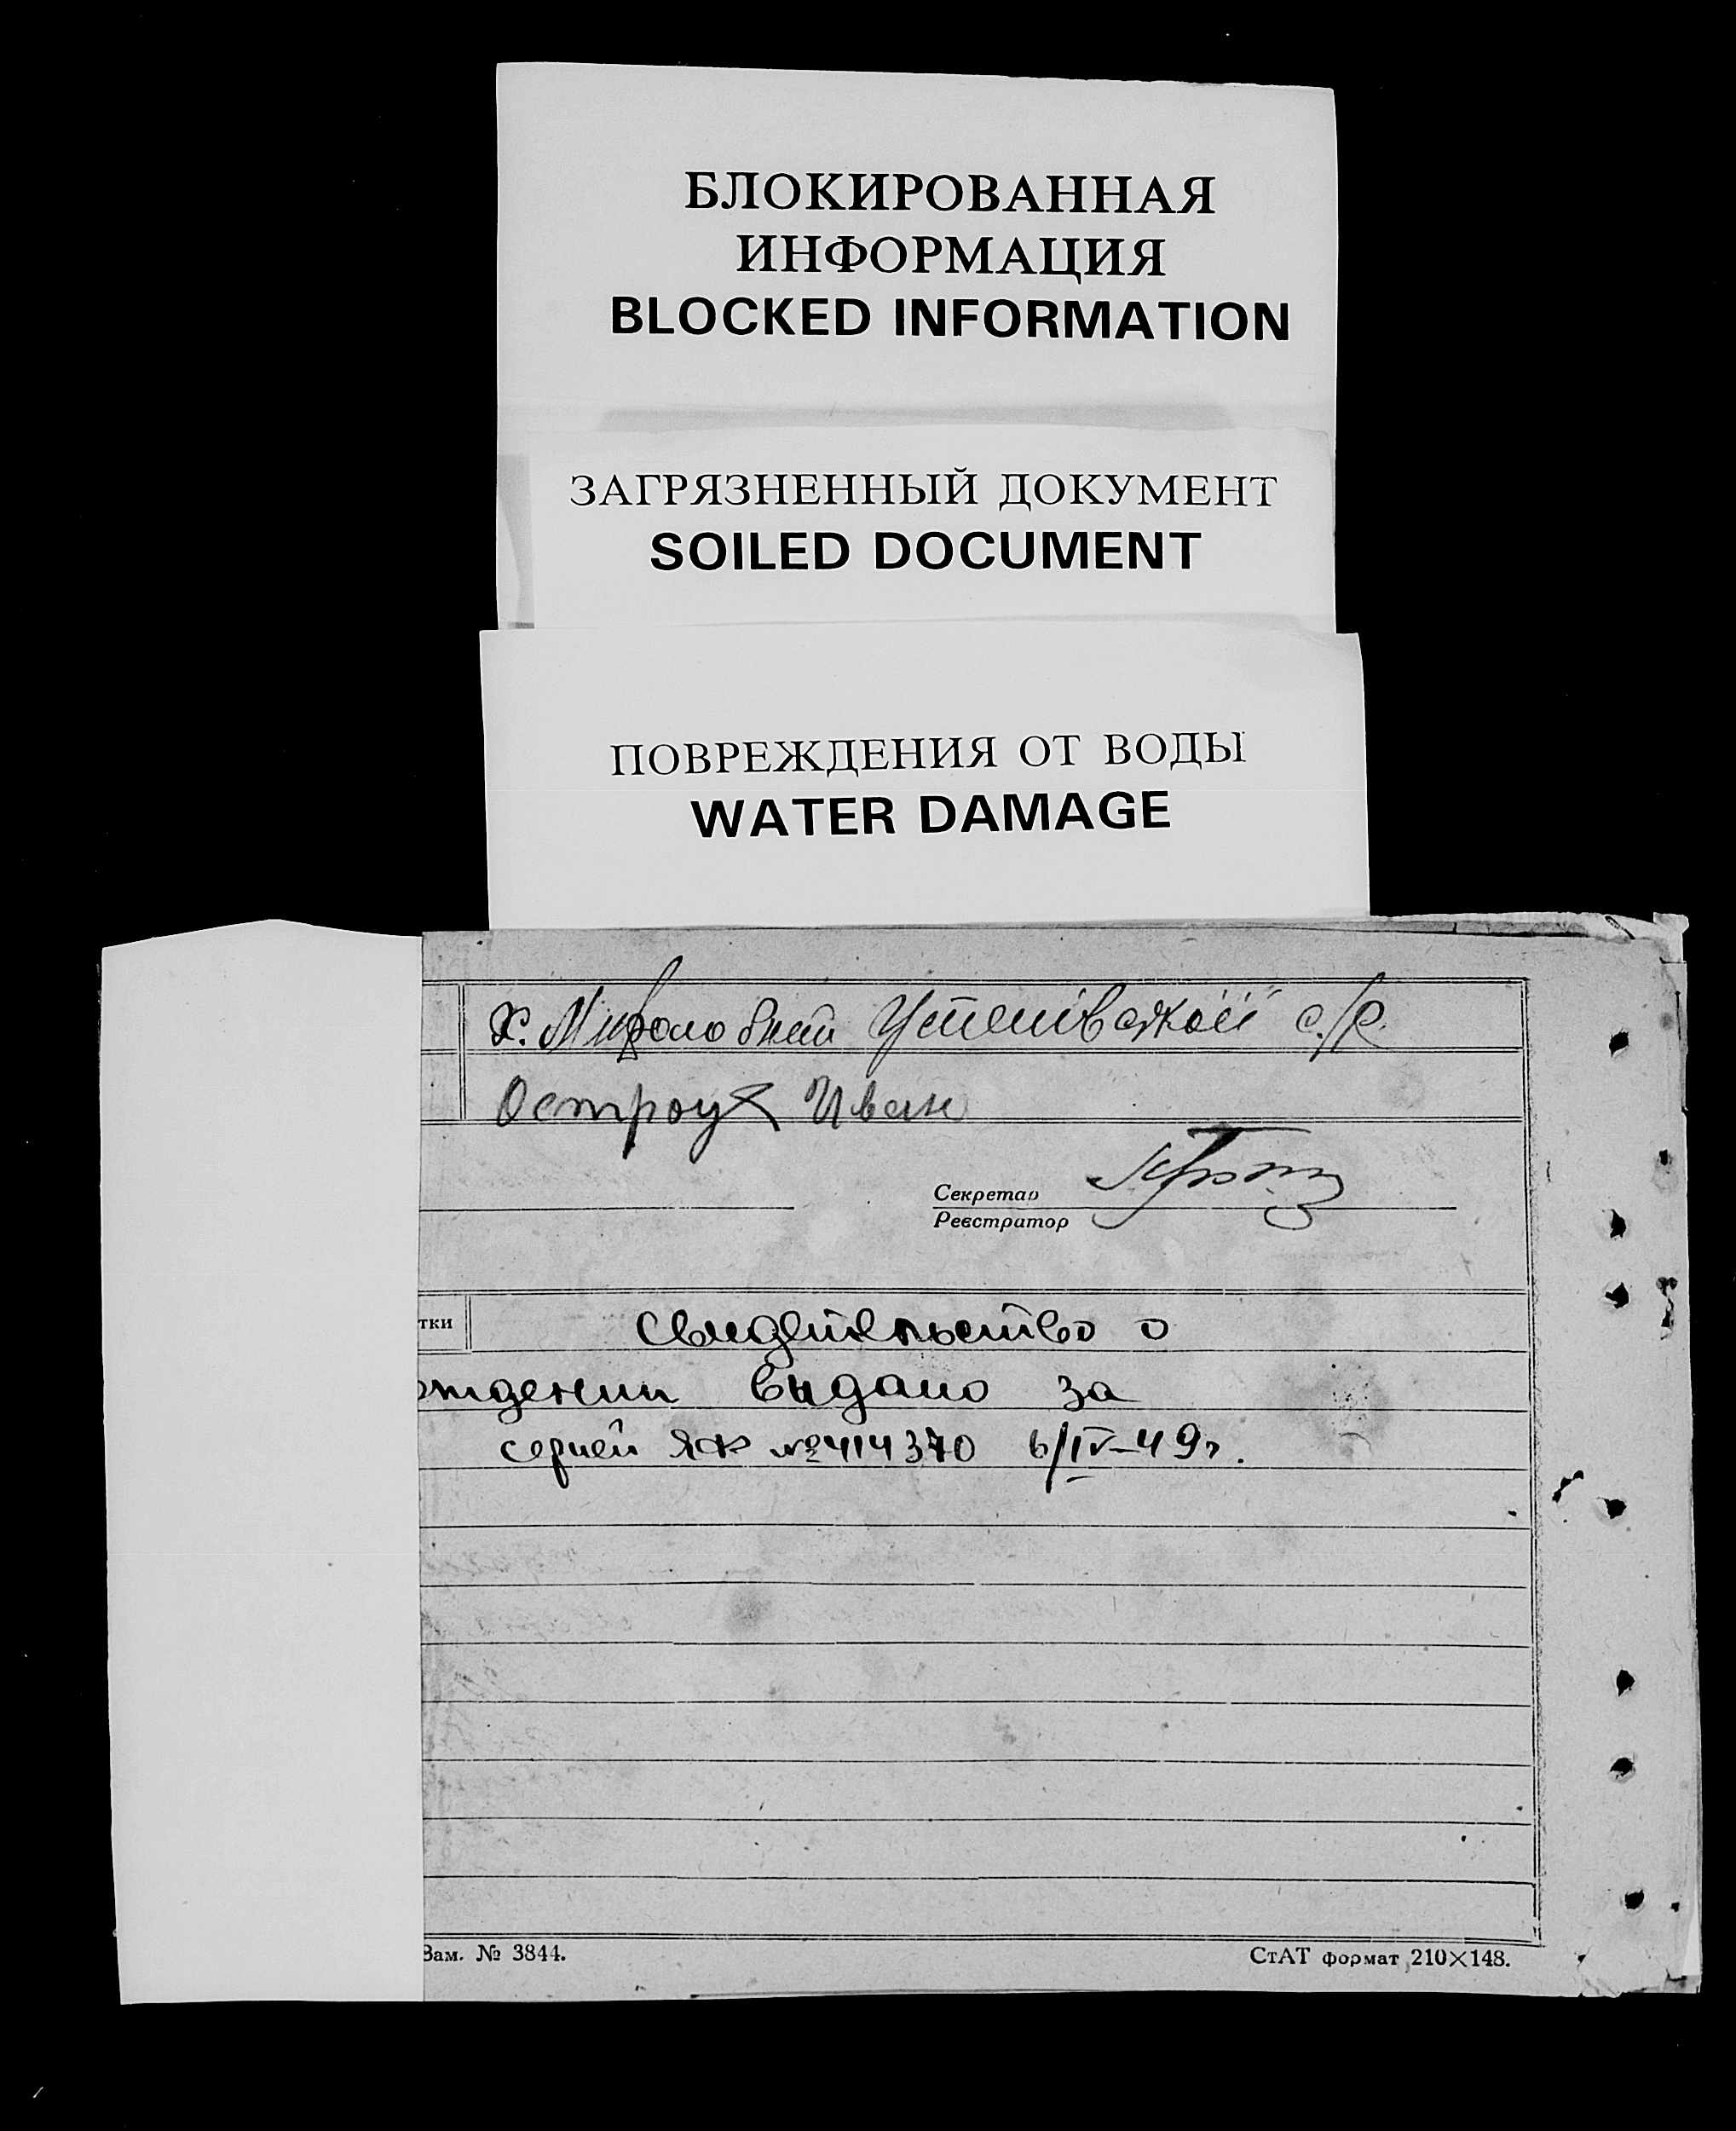 БЛОКИРОВАННАЯ
ИНФОРМАЦИЯ
BLOCKED INFORMATION
ЗАГРЯЗНЕННЫЙ ДОКУМЕНТ
SOILED DOCUMENT
ПОВРЕЖДЕНИЯ ОТ ВОДЫ
WATER DAMAGE
х. с/р.
Остроух Иван
Секретар
Реєстратор
тки Свидетельство о
ождении выдано за
серией ЯФ №414370 6/IV-49г.
Зам. № 3844.
СтАТ формат 210×148.